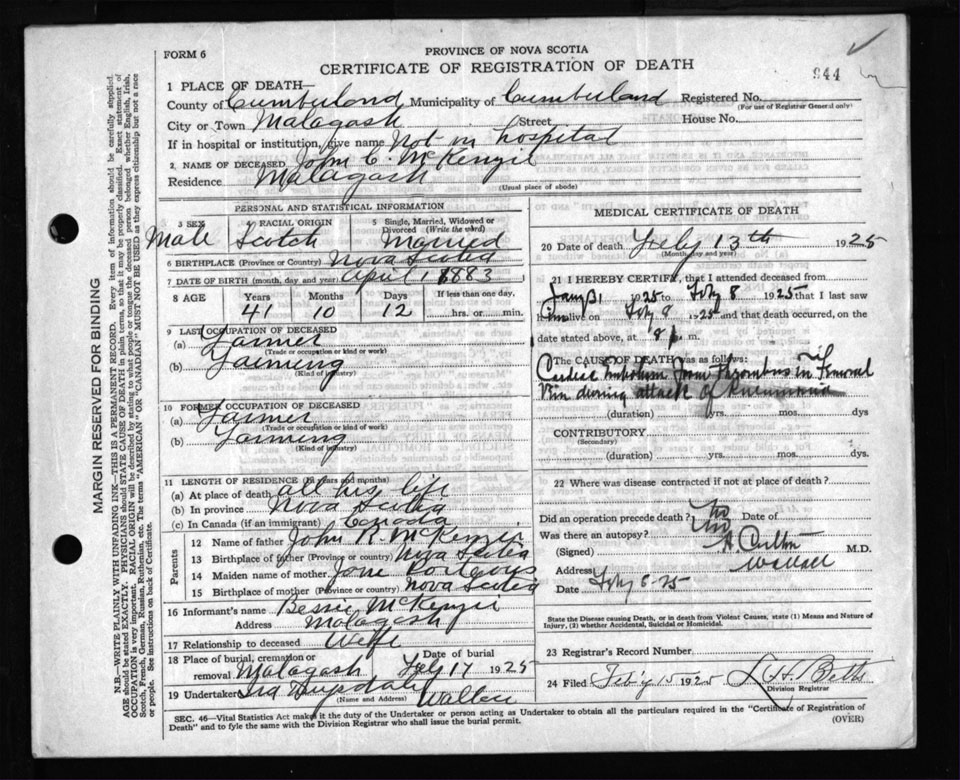 FORM 6
PROVINCE OF NOVA SCOTIA
CERTIFICATE OF REGISTRATION OF DEATH
944
1 PLACE OF DEATH—
County of Cumberland Municipality of Cumberland Registered No.
(For use of Registrar General only)
City or Town Malagash Street House No.
If in hospital or institution, give name Not in hospital
2. NAME OF DECEASED John C. McKenzie
Residence Malagash
(Usual place of abode)
PERSONAL AND STATISTICAL INFORMATION
3 SEX Male
4 RACIAL ORIGIN Scotch
5 Single, Married, Widowed or Divorced (Write the word) Married
6 BIRTHPLACE (Province or Country) Nova Scotia
7 DATE OF BIRTH (month, day and year) April 1 1883
8 AGE Years Months Days If less than one day,
41 10 12 hrs. or min.
9 LAST OCCUPATION OF DECEASED
(a) Farmer
(Trade or occupation or kind of work)
(b) Farming
(Kind of industry)
10 FORMER OCCUPATION OF DECEASED
(a) Farmer
(Trade or occupation or kind of work)
(b) Farming
(Kind of industry)
11 LENGTH OF RESIDENCE (In years and months)
(a) At place of death all his life
(b) In province Nova Scotia
(c) In Canada (if an immigrant) Canada
Parents
12 Name of father John R. McKenzie
13 Birthplace of father (Province or country) Nova Scotia
14 Maiden name of mother Jane Porteous
15 Birthplace of mother (Province or country) Nova Scotia
16 Informant's name Bessie McKenzie
Address Malagash
17 Relationship to deceased Wife
18 Place of burial, cremation or removal Malagash Date of burial Feby 17 1925
19 Undertaker
(Name and Address) Wallace
MEDICAL CERTIFICATE OF DEATH
20 Date of death Feby 13th 1925
(Month, day and year)
21 I HEREBY CERTIFY, that I attended deceased from
Jany 31 1925 to Feby 8 1925 that I last saw
him alive on Feby 8 1925 and that death occurred, on
date stated above, at 8 p. m.
The CAUSE OF DEATH was as follows:
Cardiac Embolism from Thrombus in Femoral
Vein during attack of pneumonia
(duration) yrs. mos. dys
CONTRIBUTORY
(Secondary)
(duration) yrs. mos. dys.
22 Where was disease contracted if not at place of death?
Did an operation precede death? No Date of
Was there an autopsy? No
(Signed) M.D.
Address Wallace
Date
State the Disease causing Death, or in death from Violent Causes, state (1) Means and Nature of Injury, (2) whether Accidental, Suicidal or Homicidal.
23 Registrar's Record Number
24 Filed Feby 15 1925 Betts
Division Registrar
SEC. 46—Vital Statistics Act makes it the duty of the Undertaker or person acting as Undertaker to obtain all the particulars required in the "Certificate of Registration of
Death" and to fyle the same with the Division Registrar who shall issue the burial permit.
(OVER)
MARGIN RESERVED FOR BINDING
N.B.—WRITE PLAINLY WITH UNFADING INK—THIS IS A PERMANENT RECORD. Every item of information should be carefully supplied.
AGE should be stated EXACTLY. PHYSICIANS should STATE CAUSE OF DEATH in plain terms, so that it may be properly classified. Exact statement of
OCCUPATION is very important. RACIAL ORIGIN will be described by stating to what people or tongue the deceased person belonged whether English, Irish,
Scotch, French, German, Russian, Ruthenian, etc. The terms "AMERICAN" OR "CANADIAN" MUST NOT BE USED as they express citizenship but not a race
or people. See instructions on back of Certificate.